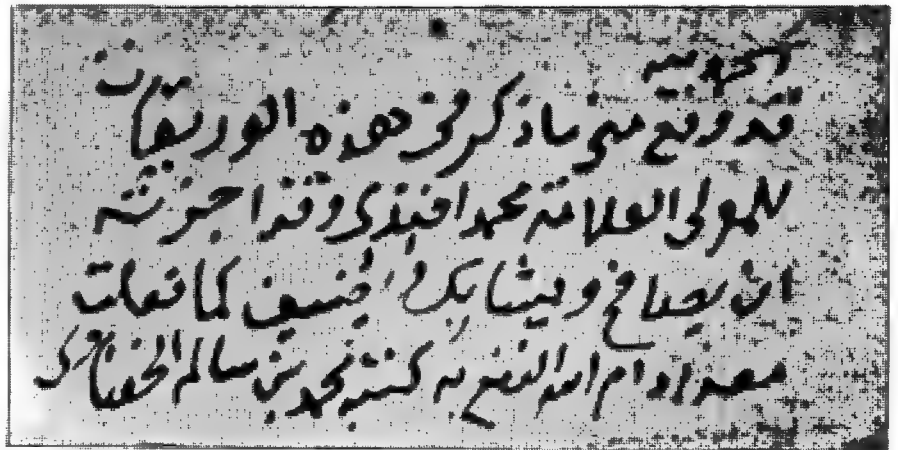 الحمد لله
قد وقع مني ما ذكر في هذه الوريقات
للمولى العلامة محمد افندي وقد اجزته
ان يصافح ويشابك و كما فعلت
معه ادام الله النفع به كتبه محمد بن سالم الحفناوي